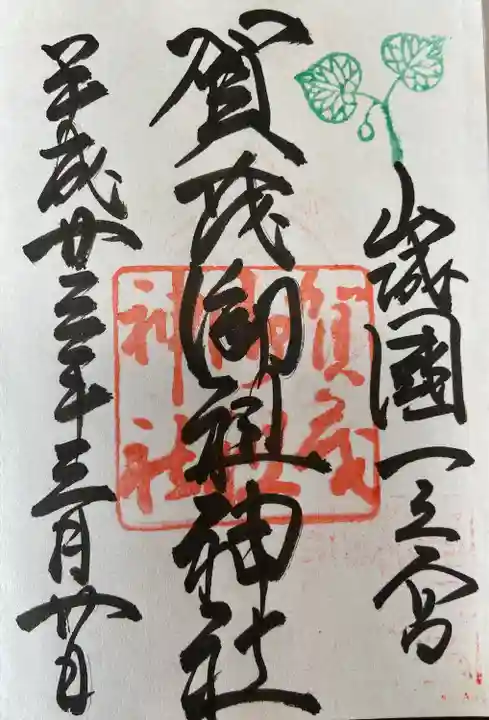 山城國一之宮
賀茂御祖神社
平成廿三年三月廿日
賀茂
御祖
神社